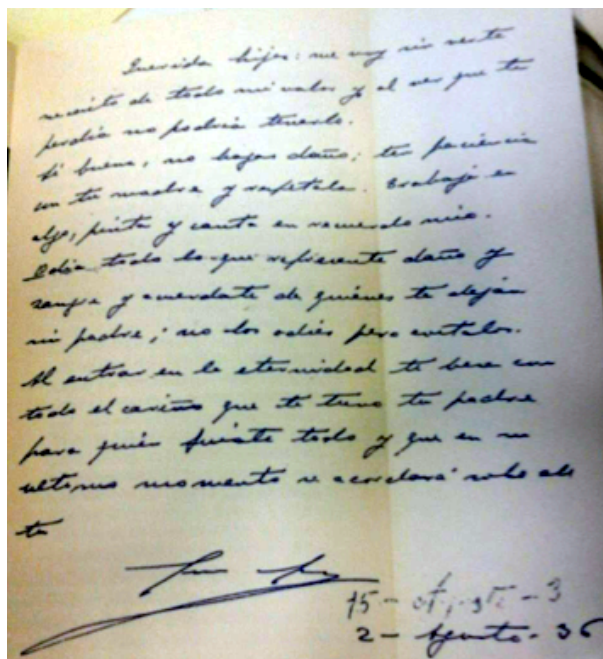 Querida hija: me voy sin verte
necesito de todo mi valor y al ver que te
perdía no podría tenerlo.
Sé buena, no hagas daño; ten paciencia
con tu madre y respétala. trabaja en
algo, pinta y canta en recuerdo mio.
Odia todo lo que represente daño y
sangre y acuerdate de quiénes te dejan
sin padre; no los odiés pero evitalos.
Al entrar en la eternidad te besa con
todo el cariño que te tuvo tu padre
para quién fuiste todo y que en su
ultimo momento se acordará solo de
ti
15 - - 3
2 - Agosto - 36